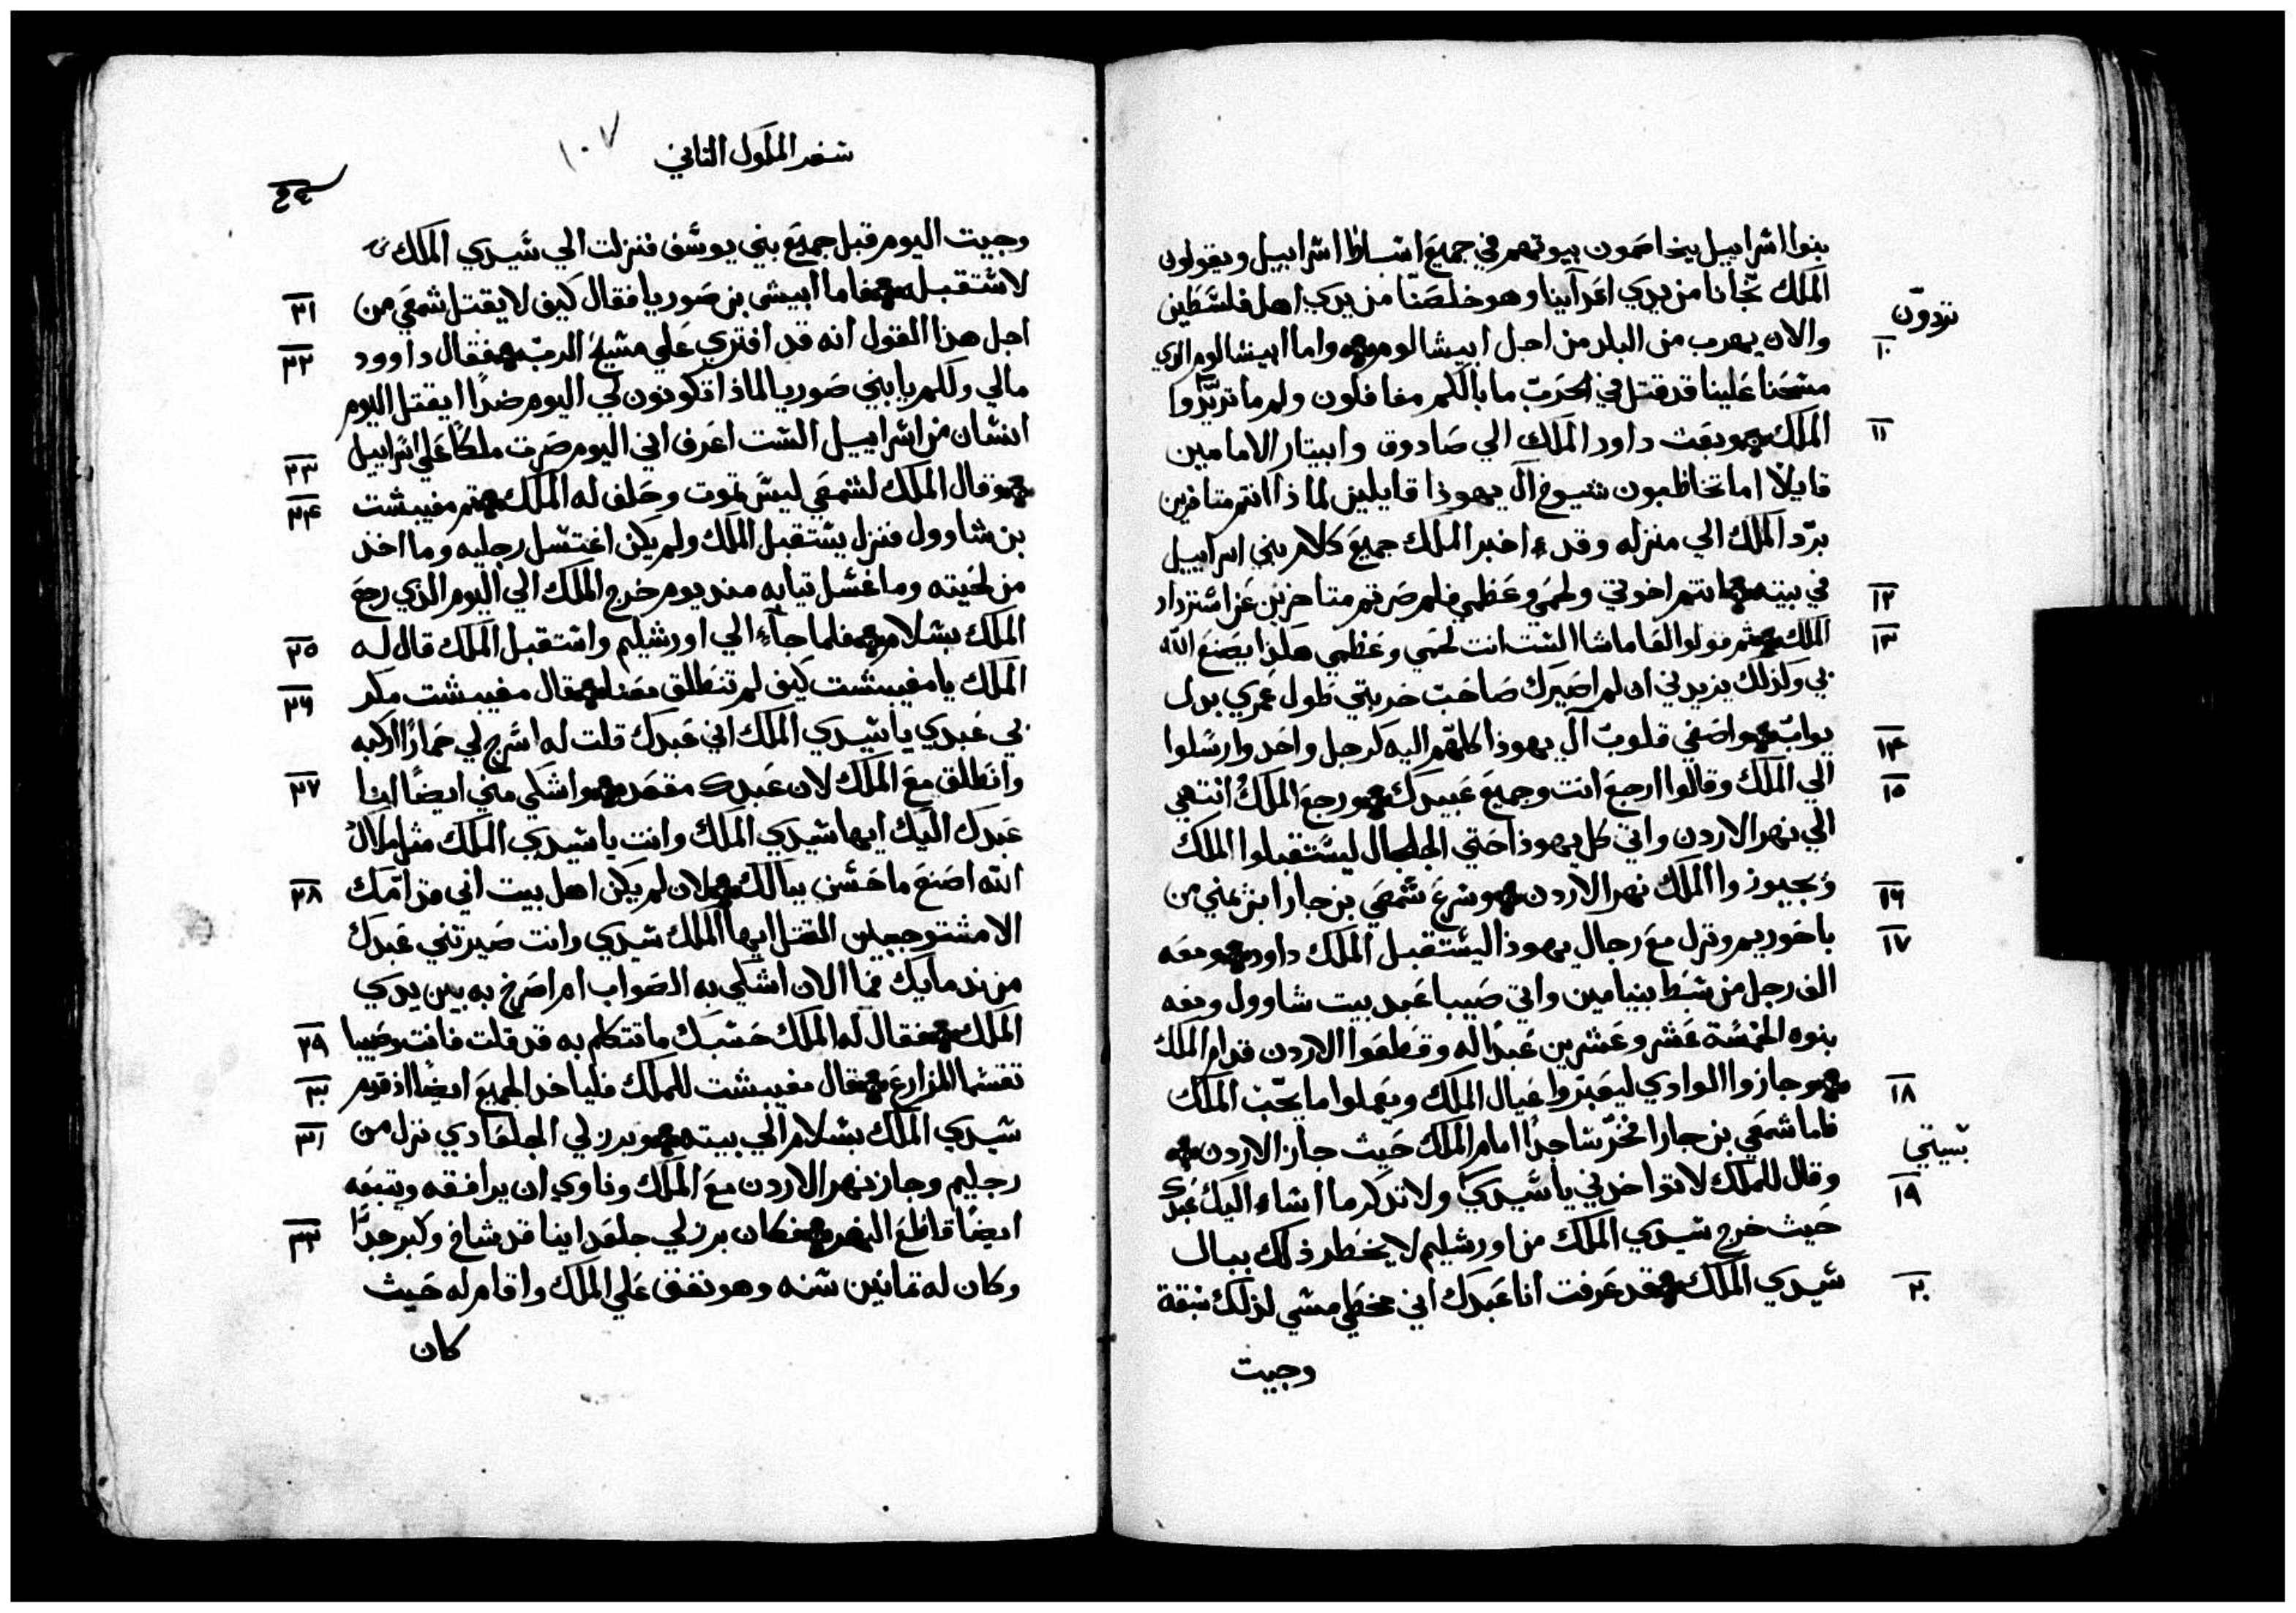 بنوا اشراييل يخاصمون بيوتهم في جميع اشباط اشراييل ويقولون
الملك نجّانا من يدي اعدآينا وهو خلصنا من يدي اهل فلشطين
تردون
والان يهرب من البلد من اجل ابيشالوم واما ابيشالوم الذي
١٠
مشحنا علينا قد قتل في الحرب ما بالكم مغافلون ولم ما تردّوا
الملك وبعت داود الملك الي صادوق وابيتار الامامين
١١
قايلًا اما تخاطبون شيوخ آل يهوذا قايلين لماذا انتم متاخرين
بردّ الملك الي منزله وقد اخبر الملك جميع كلام بني اسراييل
في بيته انتم اخوتي ولحمي وعظمي فلم صرتم متاخرين عن اشترداد
١٢
الملك ثم قولوا لعاماشا الشت انت لحمي وعظمي هكذا يصنع الله
١٣
بي وكذلك يزيدني ان لم اصيرك صاحب حربتي طول عمري بدل
يواب واصغي قلوب آل يهوذا كلهم اليه كرجل واحد وارشلوا
١٤
الي الملك وقالوا ارجع انت وجميع عبيدك ورجع الملك انتهي
١٥
الي نهر الاردن واتي كل يهوذا حتي الجلجال ليشتقبلوا الملك
ويجيوزوا الملك نهر الاردن وشرع شمعي بن جارا ابن يمني من
١٦
باحوريم ونزل مع رجال يهوذا ليشتقبل الملك داود ومعه
١٧
الف رجل من شبط بنيامين واتي صيبا عبد بيت شاوول ومعه
بنوه الخمشة عشر وعشرين عبدًا له وقطعوا الاردن قدام الملك
وجازوا الوادي ليعبروا عيال الملك ويعملوا ما يحب الملك
١٨
فاما شمعي بن جارا فخرّ شاجدًا امام الملك حيث جاز الاردن
وقال للملك لا تواخدني يا شيدي ولا تدكر ما اشاء اليك عبدك
١٩
حيث خرج شيدي الملك من اورشليم لا يخطر ذلك ببال
شيدي الملك قد عرفت انا عبدك اني مخطي مشي لذلك شبقة
٢٠
وجيت
شفر الملوك الثاني
١٠٧
وجيت اليوم قبل جميع بني يوشف فنزلت الي شيدي الملك
لاشتقبله فاما ابيشي بن صوريا فقال كيف لا يقتل شمعي من
٢١
اجل هذا القول انه قد افتري علي مشيح الرب فقال داوود
٢٢
مالي ولكم يا بني صوريا لماذا تكونون لي اليوم ضدًا ايقتل اليوم
انشان من اشراييل الشت اعرف اني اليوم صرت ملكًا علي اشراييل
٢٣
وقال الملك لشمعي ليش تموت وحلف له الملك ثم مفيبشت
٢٤
بن شاوول فنزل يشتقبل الملك ولم يكن اغتشل رجليه وما اخذ
من لحيته وما غشل تيابه مند يوم خرج الملك الي اليوم الذي رجع
الملك بشلام فلما جآء الي اورشليم واشتقبل الملك قال له
٢٥
الملك يا مفيبشت كيف لم تنطلق معنا قال مفيبشت مكر
٢٦
بي عبدي يا شيدي الملك اني عبدك قلت له اشرج لي حمارًا اركبه
وانطلق مع الملك لان عبدك مقعد واشكي مني ايضًا انا
٢٧
عبدك اليك ايها شيدي الملك وانت يا شيدي الملك مثل ملاك
الله اصنع ما حشن ببالك لان لم يكن اهل بيت ابي من امّك
٢٨
الا مشتوجبين القتل ايها الملك شيدي وانت صيرتني عبدك
من ندمايك فما الان اشكي به الصواب ام اصرخ به بين يدي
الملك فقال له الملك حشبك ما تتكلم به قد قلت فانت وصيبا
٢٩
تقشما المزارع قال مفيبشت للملك فلياخد الجميع ايضًا اذ قدم
٣٠
شيدي الملك بشلام الي بيته وبرزلي الجلعادي نزل من
٣١
رجليم وجاز نهر الاردن مع الملك وناوي ان يرافقه ويتبعه
ايضًا قاطع النهر فكان برزلي جلعدانيا قد شاخ وكبر جدًا
٣٢
وكان له تمانين شنه وهو نفق علي الملك واقام له حيث
كان